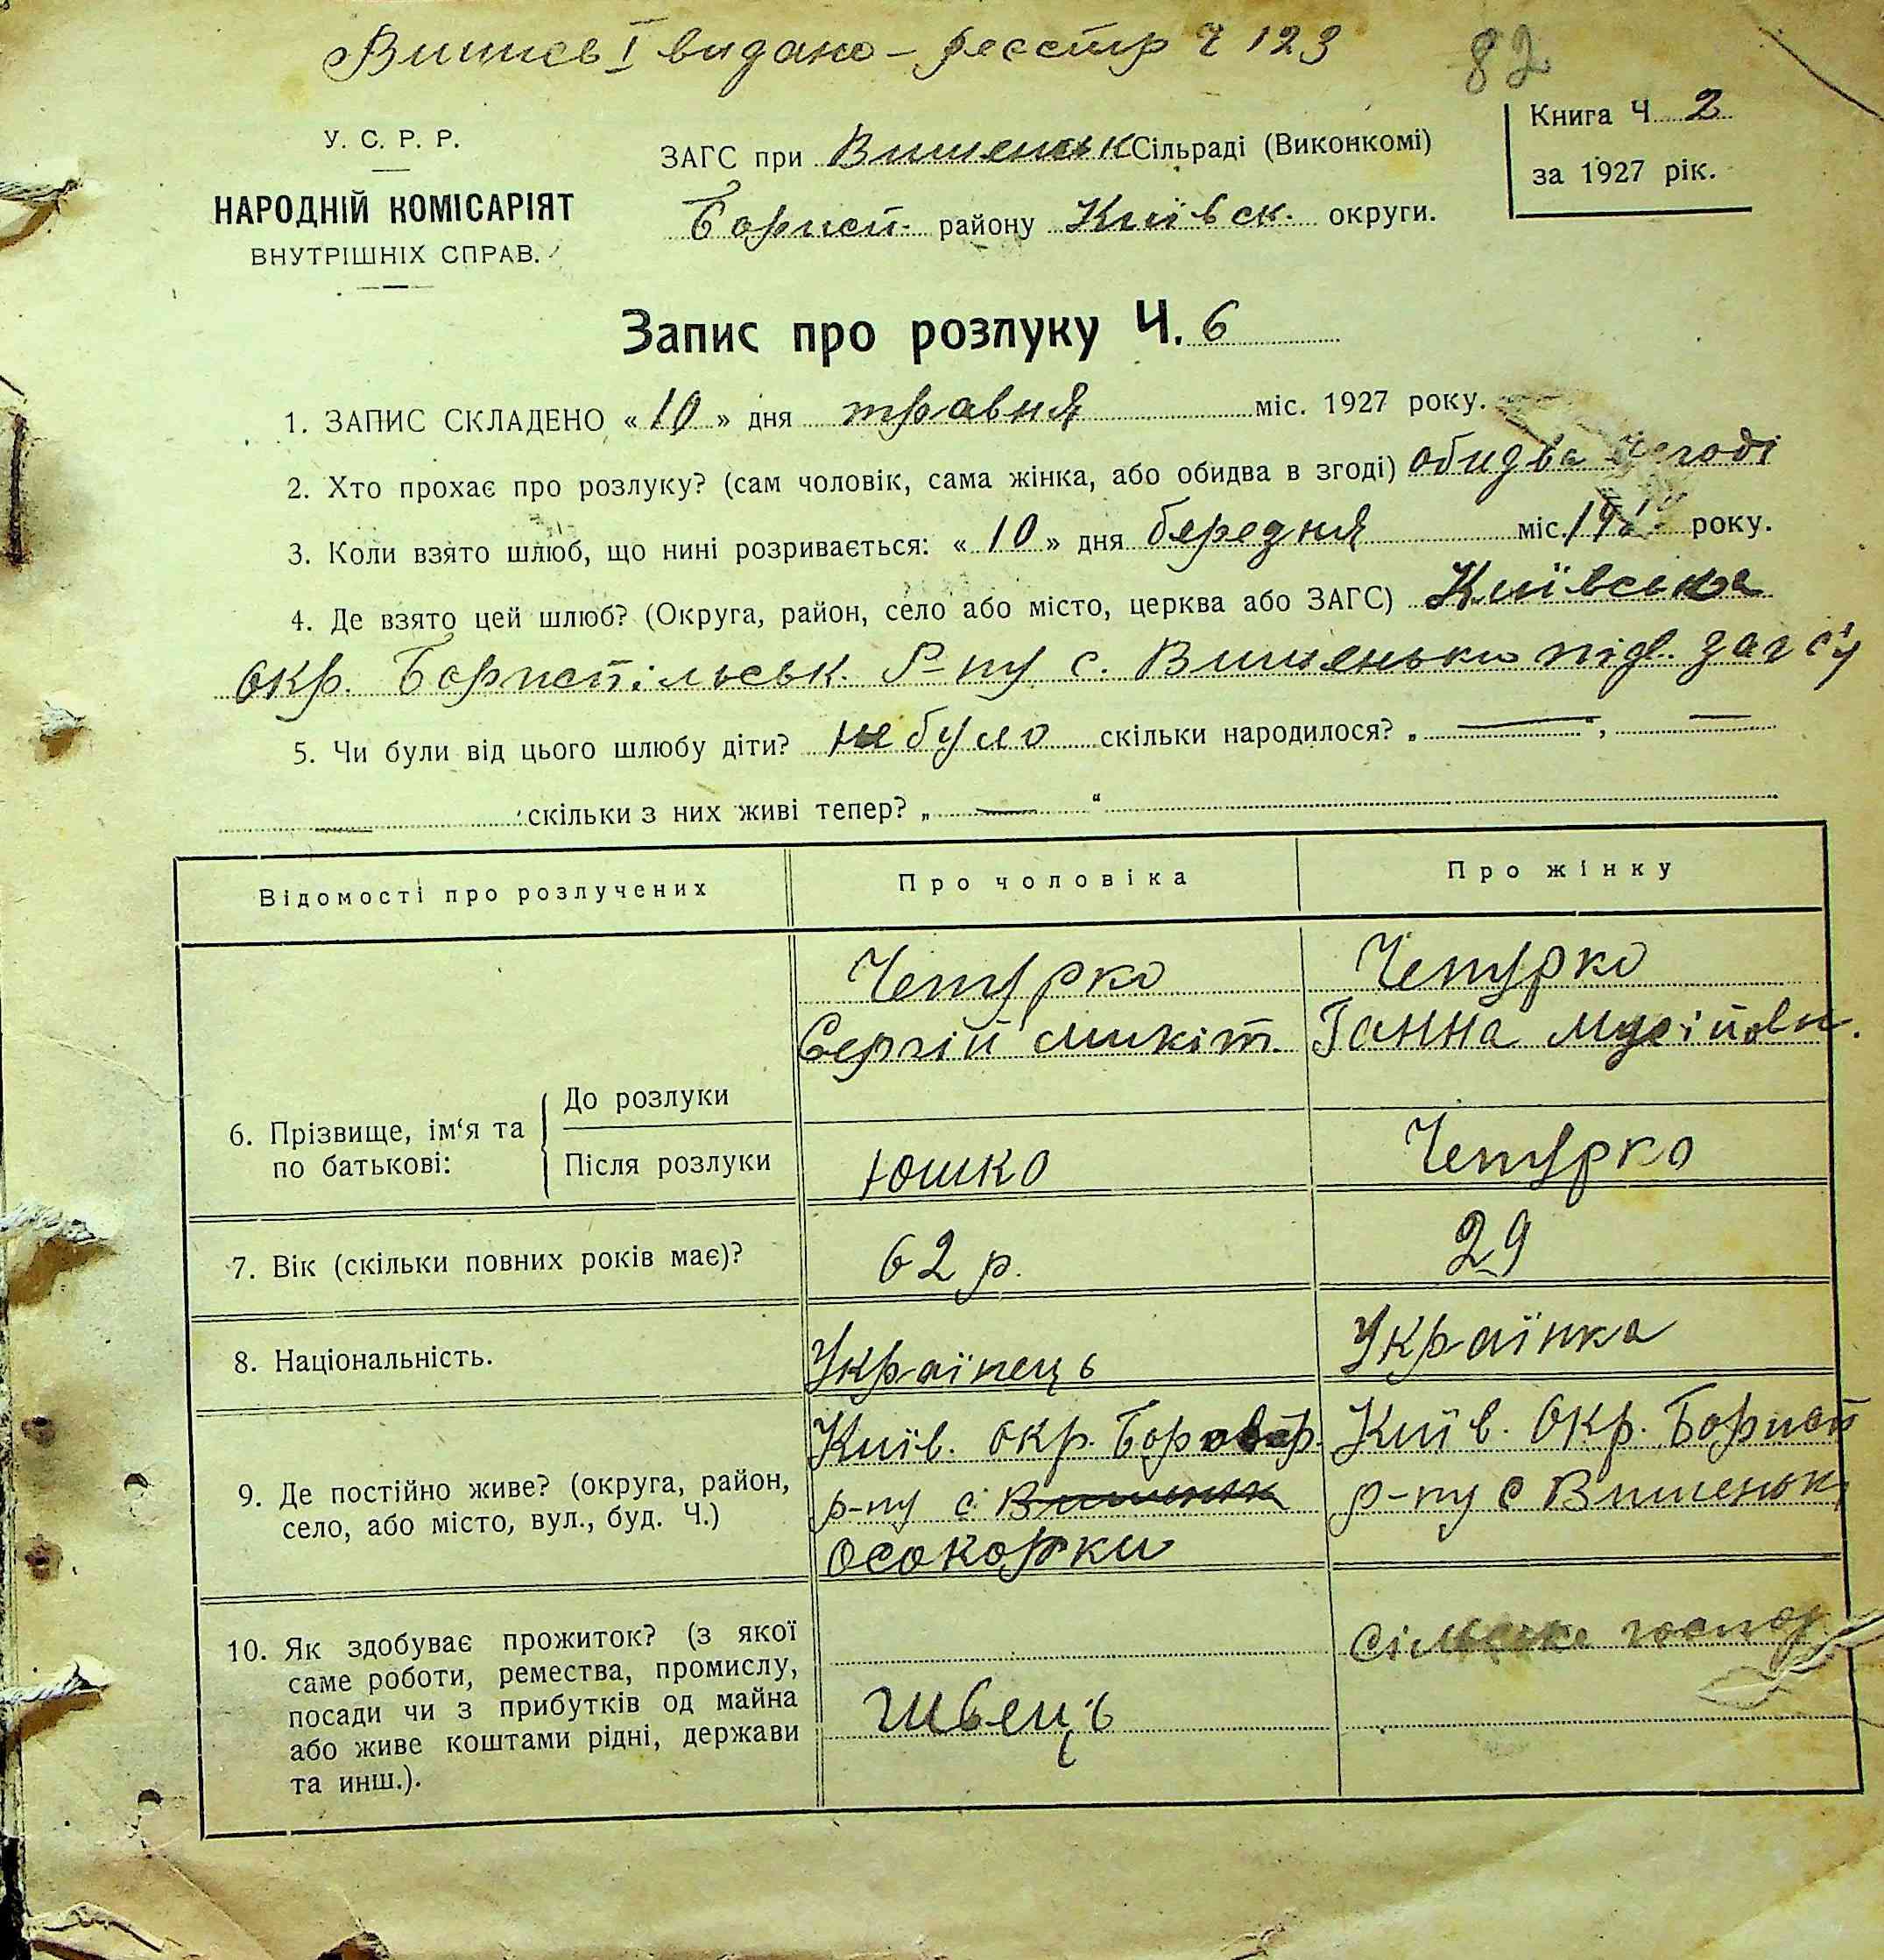 Випись I видано – реєстр Ч 123
82
Книга Ч 2
за 1927 рік.
У. С. Р. Р.
НАРОДНІЙ КОМІСАРІЯТ
ВНУТРІШНІХ СПРАВ.
ЗАГС при Вишеньк Сільраді (Виконкомі)
Борисп. району Київськ. округи.
Запис про розлуку Ч. 6
1. ЗАПИС СКЛАДЕНО «10» дня травня міс. 1927 року.
2. Хто прохає про розлуку? (сам чоловік, сама жінка, або обидва в згоді) обидва згоді
3. Коли взято шлюб, що нині розривається: «10» дня березня міс. року.
4. Де взято цей шлюб? (Округа, район, село або місто, церква або ЗАГС) Київська
окр. Бориспільськ. Р-ну с. Вишеньки підв. загс'у
5. Чи були від цього шлюбу діти? не було скільки народилося? „ — “, —
— скільки з них живі тепер? „ — “
Відомості про розлучених Про чоловіка Про жінку
Чепурко Чепурко
Сергій Микіт. Ганна Мусійовн.
6. Прізвище, ім'я та по батькові:
До розлуки
Після розлуки Юшко Чепурко
7. Вік (скільки повних років має)? 62 р. 29
8. Національність. Українець Українка
9. Де постійно живе? (округа, район, село, або місто, вул., буд. Ч.)
Київ. окр. Бровар. Київ. окр. Борисп
р-ну с. Вишеньк р-ну с Вишеньки
Осокорки
10. Як здобуває прожиток? (з якої
саме роботи, ремества, промислу,
посади чи з прибутків од майна
або живе коштами рідні, держави
та инш.).
Швець Сільське господ.